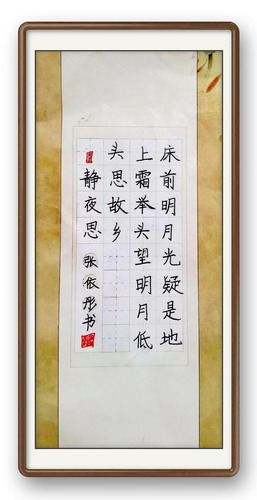 床前明月光疑是地
上霜举头望明月低
头思故乡
静夜思 张依彤书